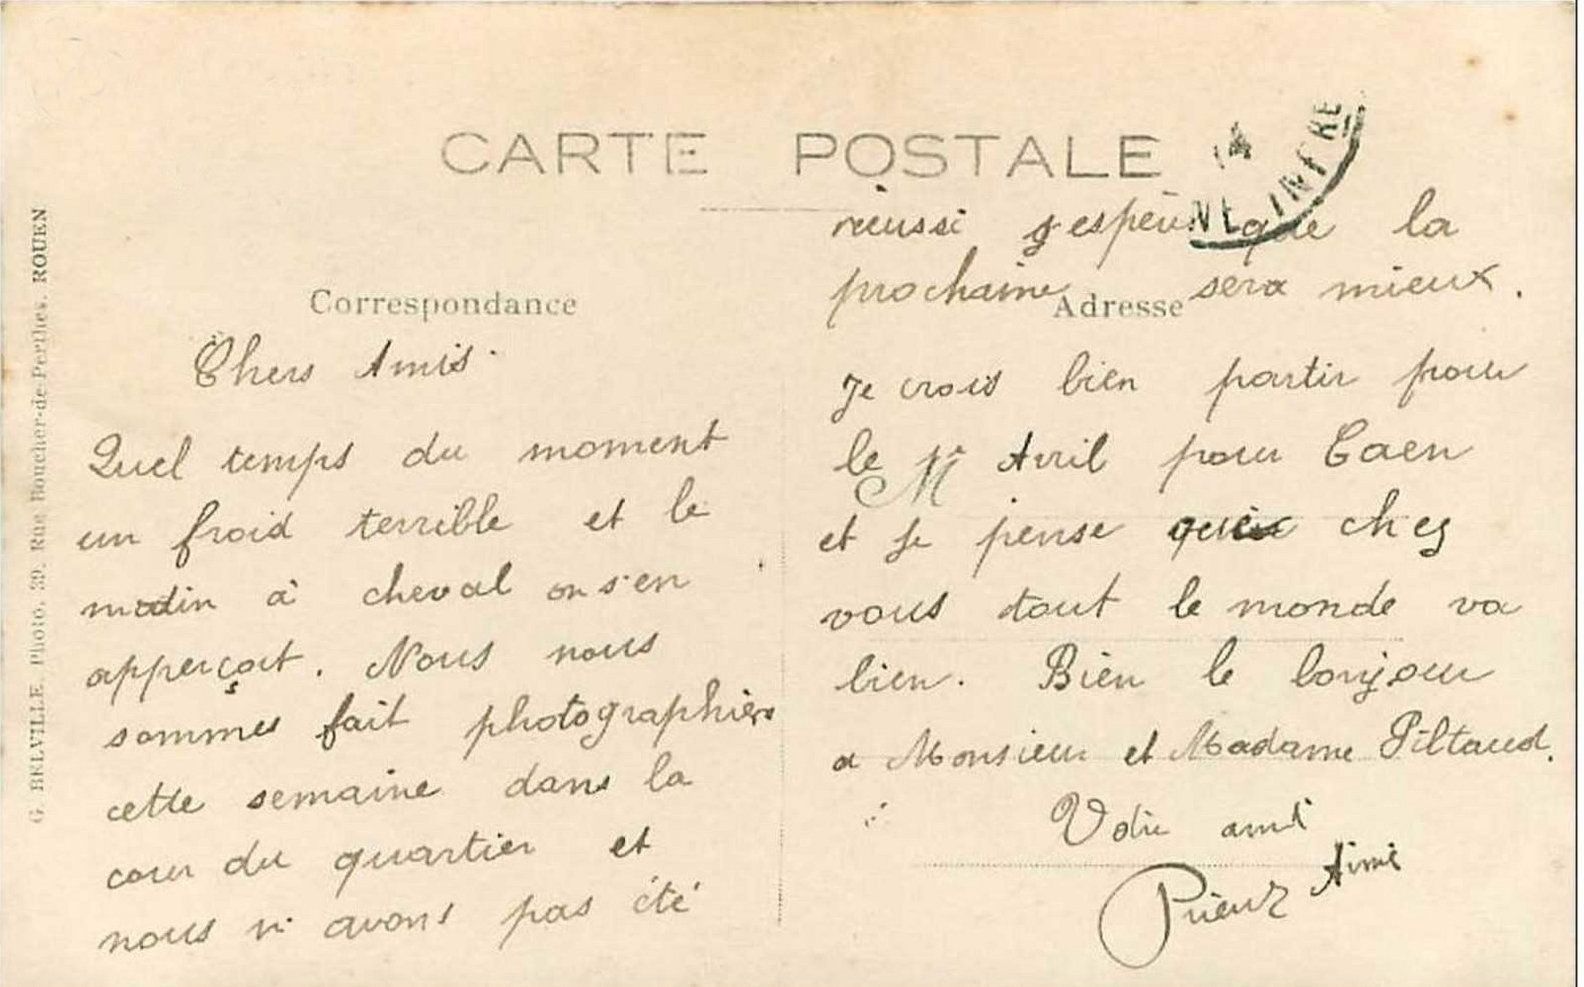 CARTE POSTALE
Correspondance
Chers Amis.
Quel temps du moment
un froid terrible et le
matin à cheval on s'en
apperçoit. Nous nous
sommes fait photographiers
cette semaine dans la
cour du quartier et
nous n'avons pas été
réussi j'espère que la
prochaine sera mieux.
Adresse
Je crois bien partir pour
le Avril pour Caen
et je pense ches
vous tout le monde va
bien. Bien le bonjour
a Monsieur et Madame Piltaud.
Votre ami
Aimé
14
NE INFRE
G. BELVILLE, Photo, 39, Rue Boucher-de-Perthes, ROUEN